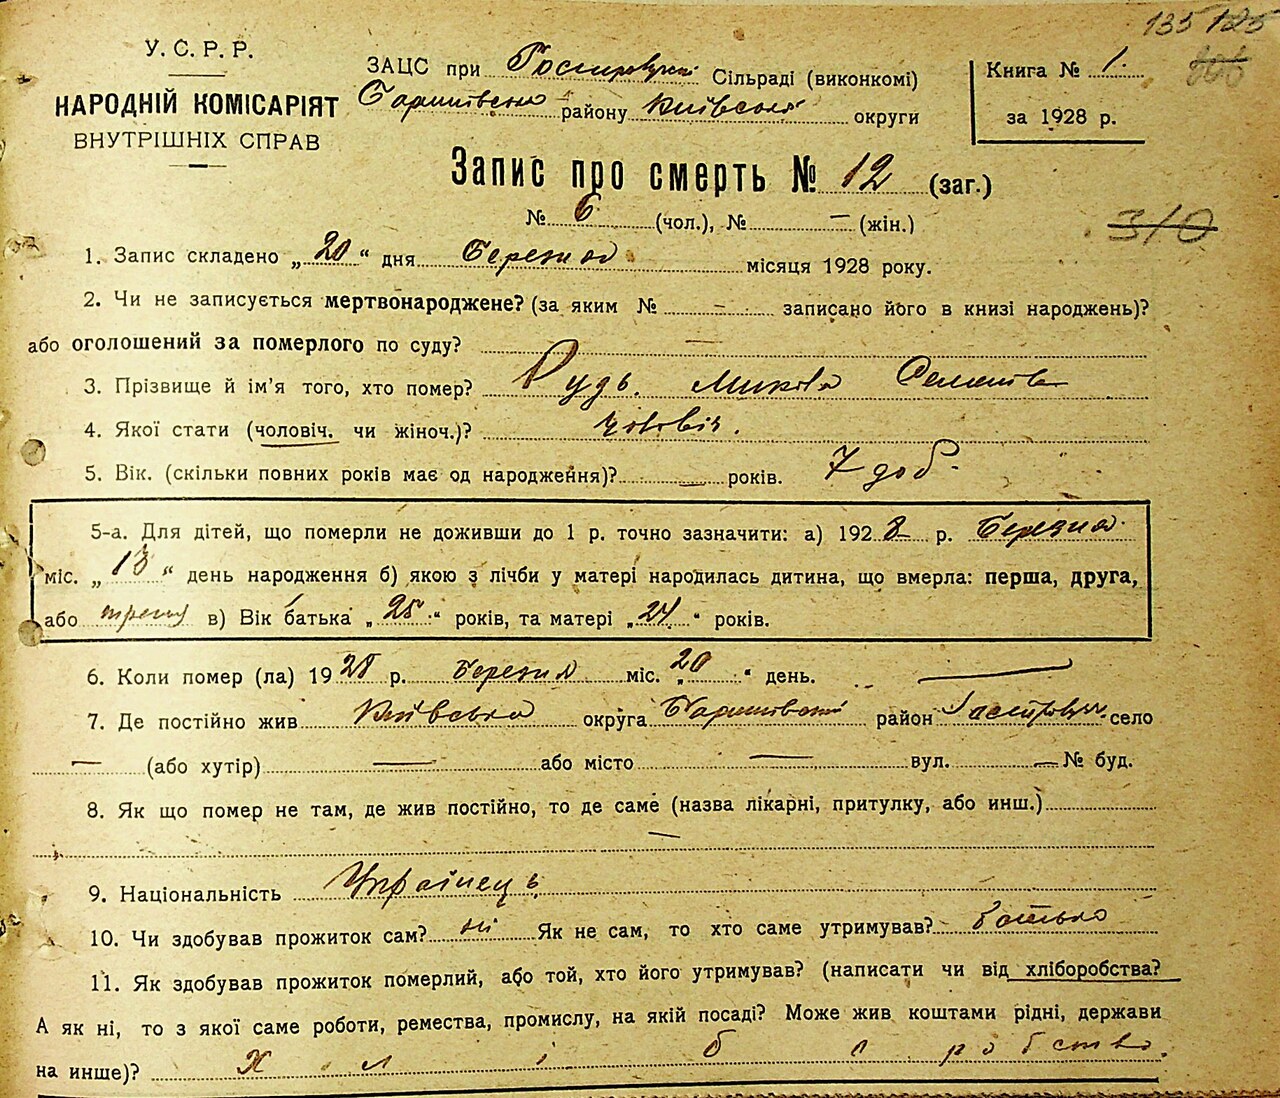 135 125
У. С. Р. Р.
НАРОДНІЙ КОМІСАРІЯТ
ВНУТРІШНІХ СПРАВ
ЗАЦС при Сільраді (виконкомі)
району Київської округи
Книга № 1.
за 1928 р.
Запис про смерть № 12 (заг.)
№ 6 (чол.), № — (жін.)
310
1. Запис складено „20“ дня Березня місяця 1928 року.
2. Чи не записується мертвонароджене? (за яким № — записано його в книзі народжень)?
або оголошений за померлого по суду? —
3. Прізвище й ім'я того, хто помер? Рудь. Микола
4. Якої стати (чоловіч. чи жіноч.)? чоловіч.
5. Вік. (скільки повних років має од народження)? — років. 7 доб.
5-а. Для дітей, що померли не доживши до 1 р. точно зазначити: а) 1928 р. Березня
міс. „13“ день народження б) якою з лічби у матері народилась дитина, що вмерла: перша, друга,
або третя в) Вік батька „25“ років, та матері „24“ років.
6. Коли помер (ла) 1928 р. Березня міс. „20“ день.
7. Де постійно жив Київська округа район село
— (або хутір) — або місто — вул. — № буд.
8. Як що помер не там, де жив постійно, то де саме (назва лікарні, притулку, або инш.)
—
9. Національність Українець
10. Чи здобував прожиток сам? ні Як не сам, то хто саме утримував? батько
11. Як здобував прожиток померлий, або той, хто його утримував? (написати чи від хліборобства?
А як ні, то з якої саме роботи, ремества, промислу, на якій посаді? Може жив коштами рідні, держави
на инше)? Хліборобство.